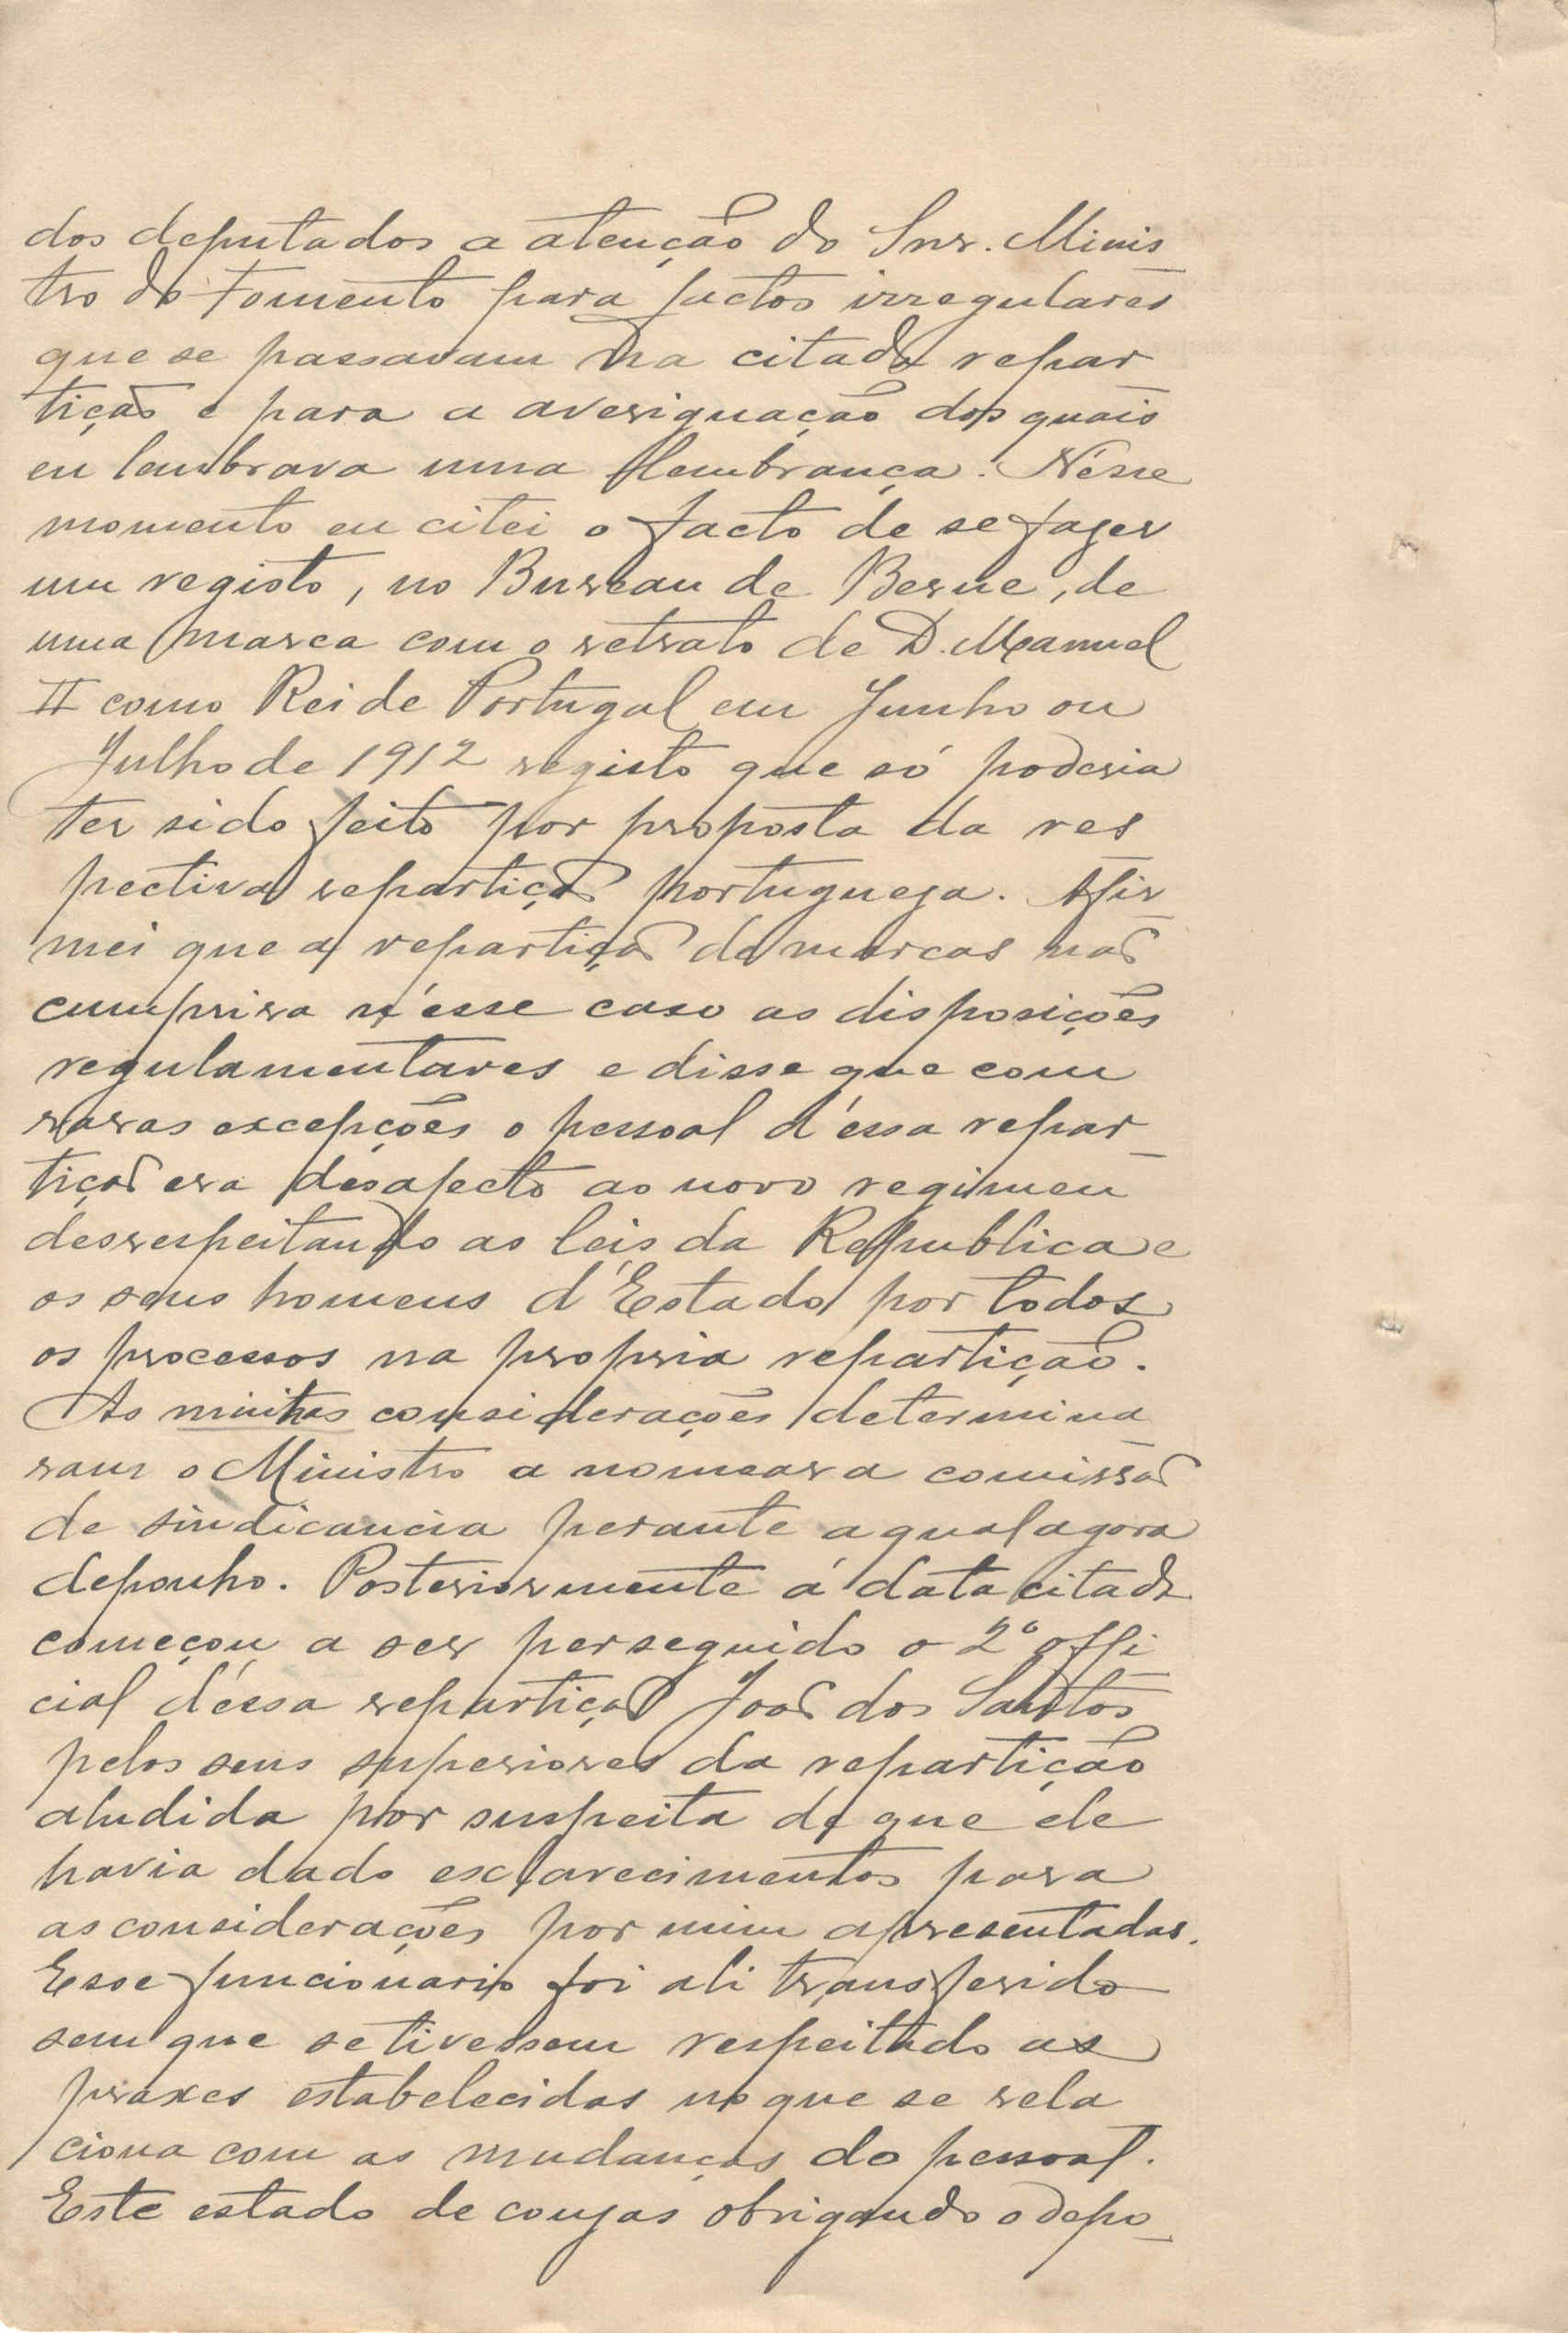 dos deputados a atenção do Snr. Minis
tro do Fomento para factos irregulares
que se passavam na citada repar
tição e para a averiguação dos quais
eu lembrava uma lembrança. Nésse
momento eu citei o facto de se fazer
um registo, no Bureau de Berne, de
uma marca com o retrato de D. Manuel
II como Rei de Portugal em Junho ou
Julho de 1912 registo que só poderia
ter sido feito por proposta da res
pectiva repartição portugueza. Afir
mei que a repartição de marcas não
cumprira n'esse caso as disposições
regulamentares e disse que com
raras excepções o pessoal d'essa repar
tição era desafecto ao novo regimen
desrespeitando as leis da Republica e
os seus homens d'Estado por todos
os processos na propria repartição.
As minhas considerações determina
ram o Ministro a nomear a comissão
de sindicancia perante a qual agora
deponho. Posteriormente á data citada
começou a ser perseguido o 2º offi
cial d'essa repartição João dos Santos
pelos seus superiores da repartição
aludida por suspeita de que ele
havia dado esclarecimentos para
as considerações por mim apresentadas.
Esse funcionario foi ali transferido
sem que se tivessem respeitado as
praxes estabelecidas no que se rela
ciona com as mudanças do pessoal.
Este estado de couzas obrigando o depo-